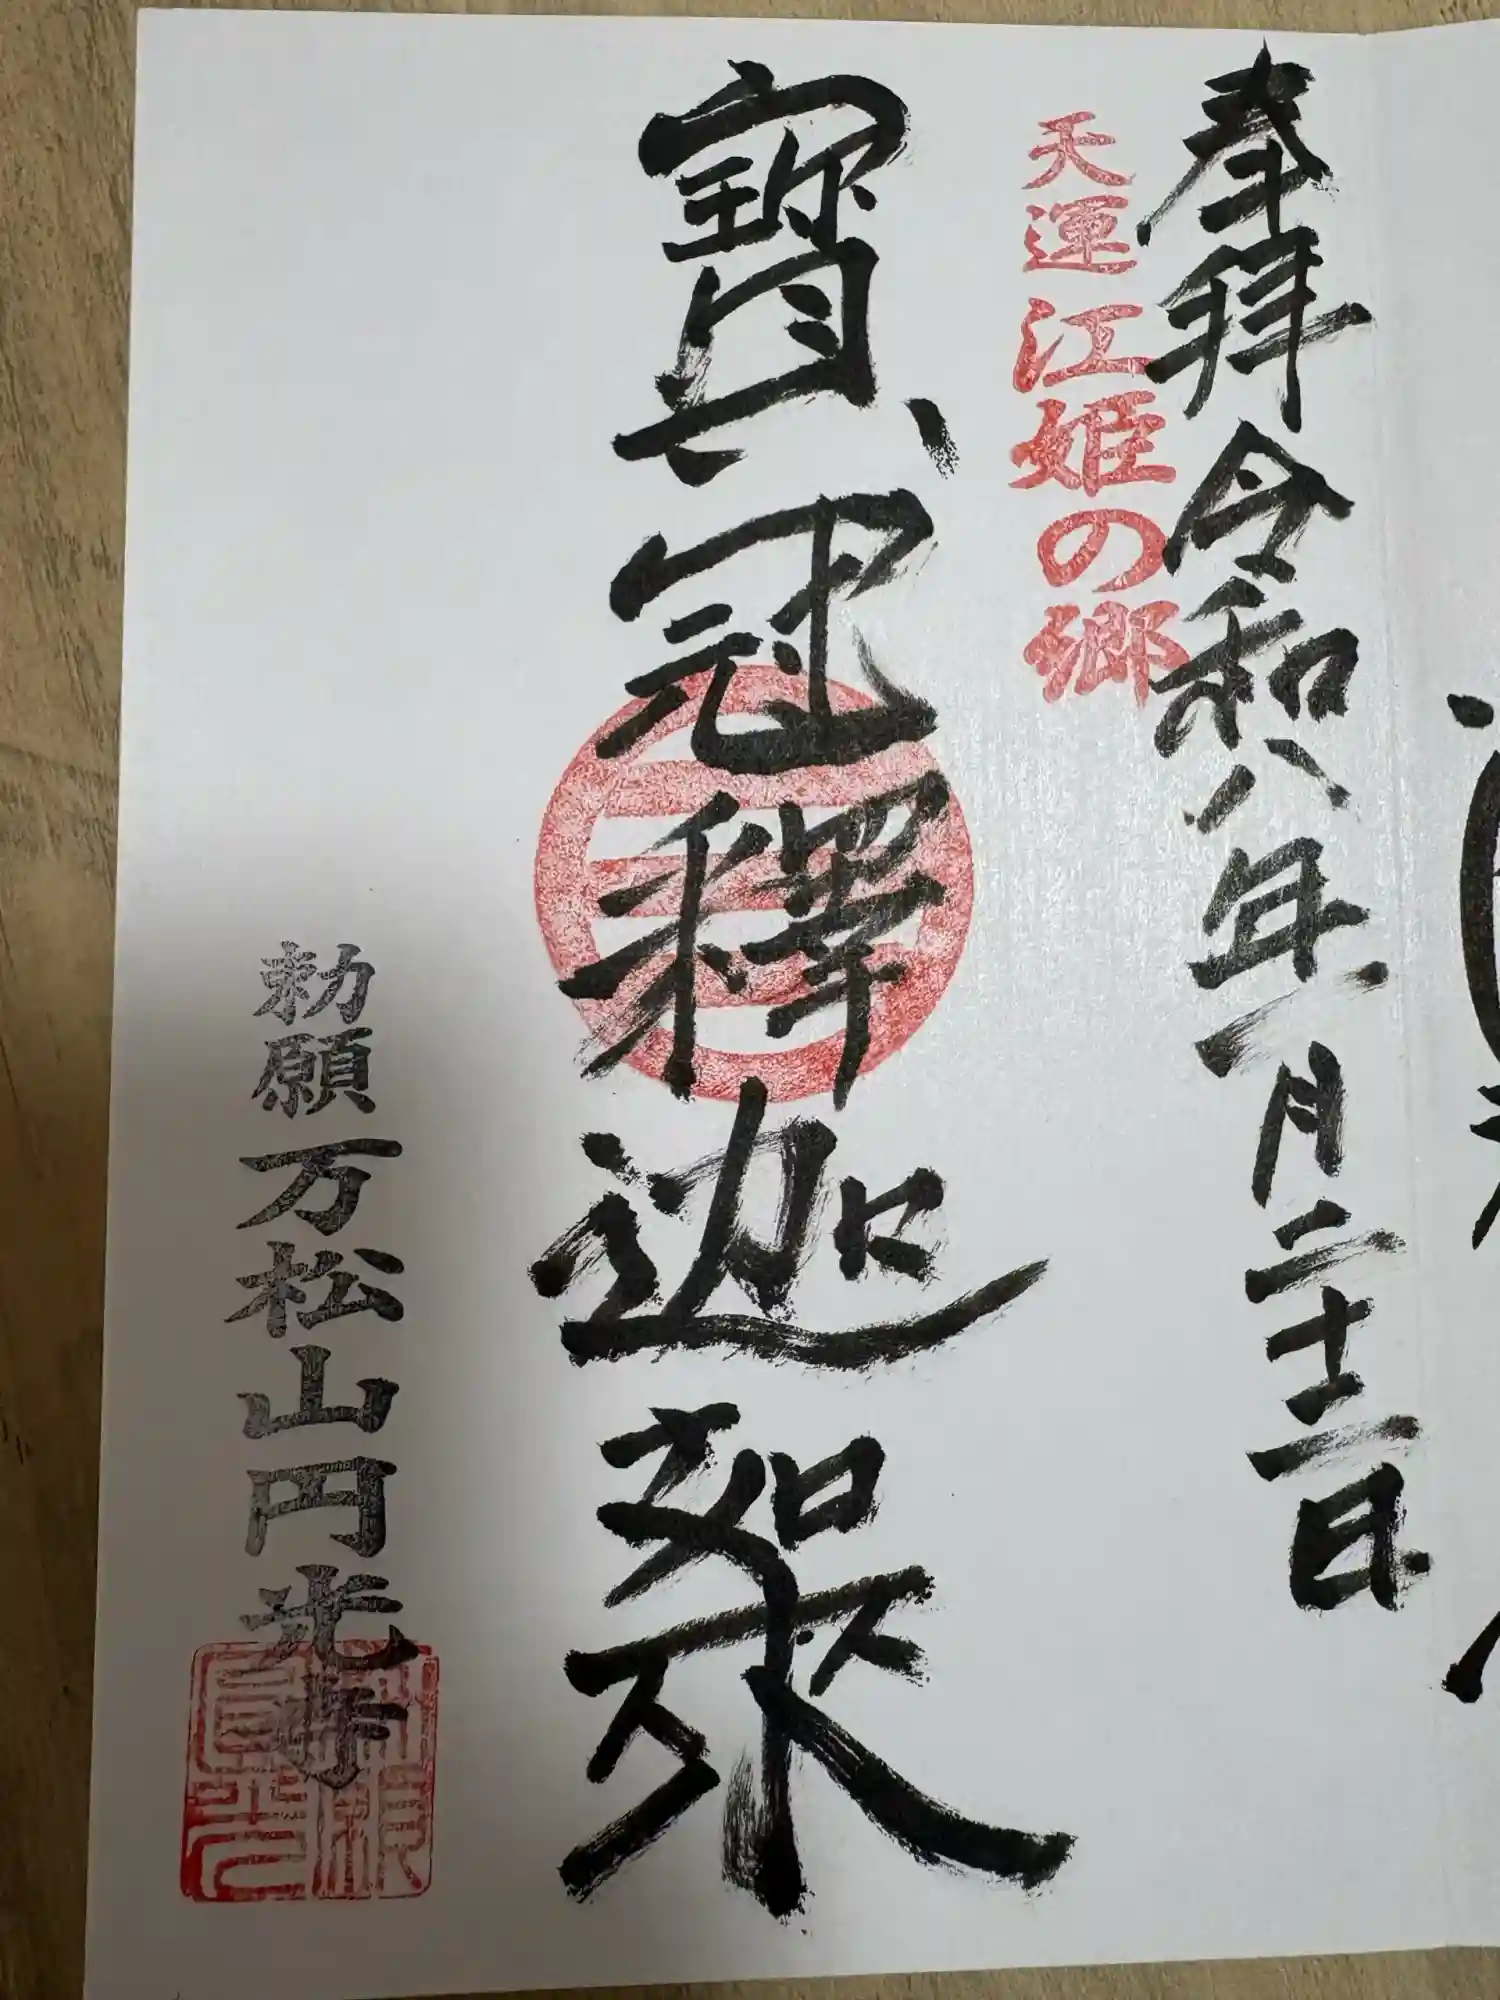 奉拝 令和八年一月二十二日
天運 江姫の郷
寶冠釋迦如來
勅願 万松山円光寺